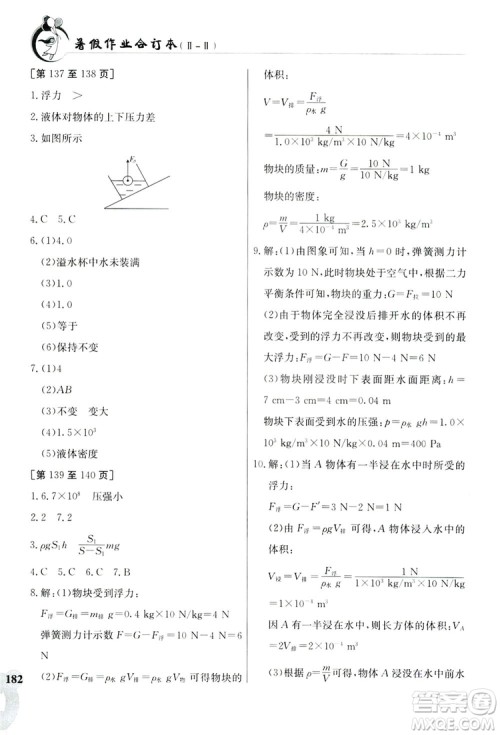 暑假作业合订本(Ⅱ-Ⅱ)
[第 137 至 138 页]
1.浮力 >
2.液体对物体的上下压力差
3.如图所示
F浮
4.C 5.C
6.(1)4.0
(2)溢水杯中水未装满
(4)1.0
(5)等于
(6)保持不变
7.(1)4.0
(2)AB
(3)不变 不变
(4)1.5×10³
(5)液体密度
[第 139 至 140 页]
1.6.7×10⁸ 压强小
2.2 7.2
3.ρgS₁h S₁/(S-S₁) mg
4.D 5.C 6.D 7.C
8.解:(1)物块受到浮力:
F浮=G排=m排g=0.4×10 N=4 N
弹簧测力计示数 F=G-F浮=10 N-4 N=6 N
(2)由 F浮=G排=ρ水 gV排 可得物块的
体积:
V=V排=F浮/(ρ水 g)
=4 N/(1.0×10³ kg/m³×10 N/kg)=4×10⁻⁴ m³
物块的质量:m=G/g=10 N/(10 N/kg)=1 kg
物块的密度:
ρ=m/V=1 kg/(4×10⁻⁴ m³)=2.5×10³ kg/m³
9.解:(1)由图象可知,当 h=0 时,弹簧测力计
示数,此时物块处于空气中,根据二力
平衡条件可知,物块的重力:G=F拉=10 N
(2)由于物体完全浸没后排开水的体积不再
变化,受到的浮力不再改变,则物块受到的最
大浮力:F浮=G-F=10 N-4 N=6 N
(3)物块刚浸没时下表面距液面距离:h=
7 cm-3 cm=4 cm=0.04 m
物块下表面受到水的压强:p=ρ水 gh=1.0×
10³ kg/m³×10 N/kg×0.04 m=400 Pa
10.解:(1)当 A 物体有一半浸在水中时所受的
浮力:
F浮=G-F′=5 N-4 N=1 N
(2)由 F浮=ρgV排 可得,A 物体浸入水中的
体积:
V浸=V排=F浮/(ρ水 g)=1 N/(1×10³ kg/m³×10 N/kg)
=1×10⁻⁴ m³
因 A 有一半体积浸在水中,则有:V_A
=2V浸=2×1×10⁻⁴ m³=2×10⁻⁴ m³
(3)由 ρ=m/V 可得,物体浸在水中前水
182
答案圈
MXQE.COM